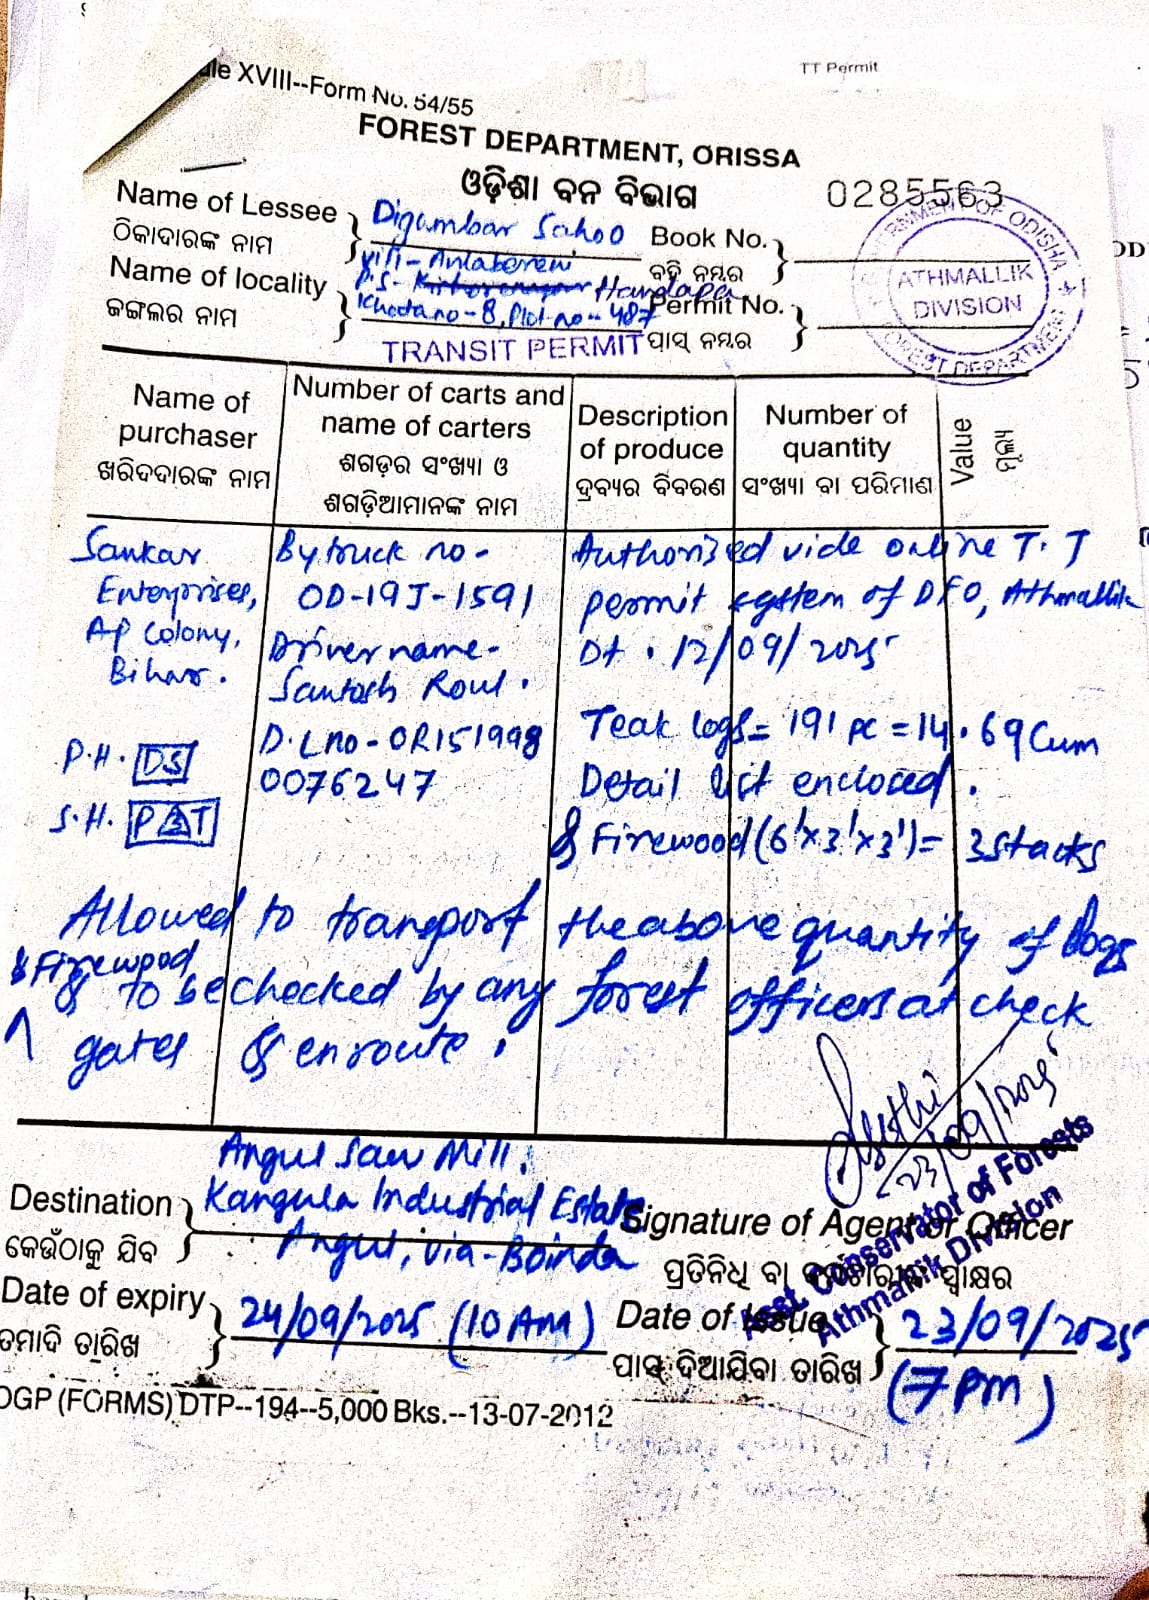 TT Permit
ule XVIII--Form No. 54/55
FOREST DEPARTMENT, ORISSA
ଓଡ଼ିଶା ବନ ବିଭାଗ
0285563
Name of Lessee
ଠିକାଦାରଙ୍କ ନାମ
Digambar Sahoo
Book No.
ବହି ନମ୍ବର
Vill-
Name of locality
ଜଙ୍ଗଲର ନାମ
P.S- Handapa
Khata no-8, Plot no-487
Permit No.
ପାସ୍ ନମ୍ବର
GOVERNMENT OF ODISHA
ATHMALLIK
DIVISION
FOREST DEPARTMENT
TRANSIT PERMIT
Name of
purchaser
ଖରିଦଦାରଙ୍କ ନାମ
Number of carts and
name of carters
ଶଗଡ଼ର ସଂଖ୍ୟା ଓ
ଶଗଡ଼ିଆମାନଙ୍କ ନାମ
Description
of produce
ଦ୍ରବ୍ୟର ବିବରଣ
Number of
quantity
ସଂଖ୍ୟା ବା ପରିମାଣ
Value
ମୂଲ୍ୟ
Sankar
Enterprises,
AP Colony,
Bihar.
P.H. DS
S.H.
By truck no-
OD-19J-1591
Driver name-
Santosh Rout.
D.L no-OR151998
0076247
Authorised vide online T.T
permit system of DFO, Athmallik
Dt. 12/09/2025
Teak logs = 191 pc = 14.69 Cum
Detail list enclosed.
& Firewood (6'x3'x3') = 3 stacks
Allowed to transport the above quantity of logs
& Firewood
& to be checked by any forest officers at check
gates & enroute.
23/09/2025
Asst Conservator of Forests
Athmallik Division
Angul Saw Mill.
Destination
କେଉଁଠାକୁ ଯିବ
Kangula Industrial Estate
Angul, via-Boinda
Signature of Agent or Officer
ପ୍ରତିନିଧି ବା କର୍ମଚାରୀଙ୍କ ସ୍ୱାକ୍ଷର
Date of expiry
ତମାଦି ତାରିଖ
24/09/2025 (10 AM)
Date of Issue
ପାସ୍ ଦିଆଯିବା ତାରିଖ
23/09/2025
(7 PM)
OGP (FORMS) DTP--194--5,000 Bks.--13-07-2012